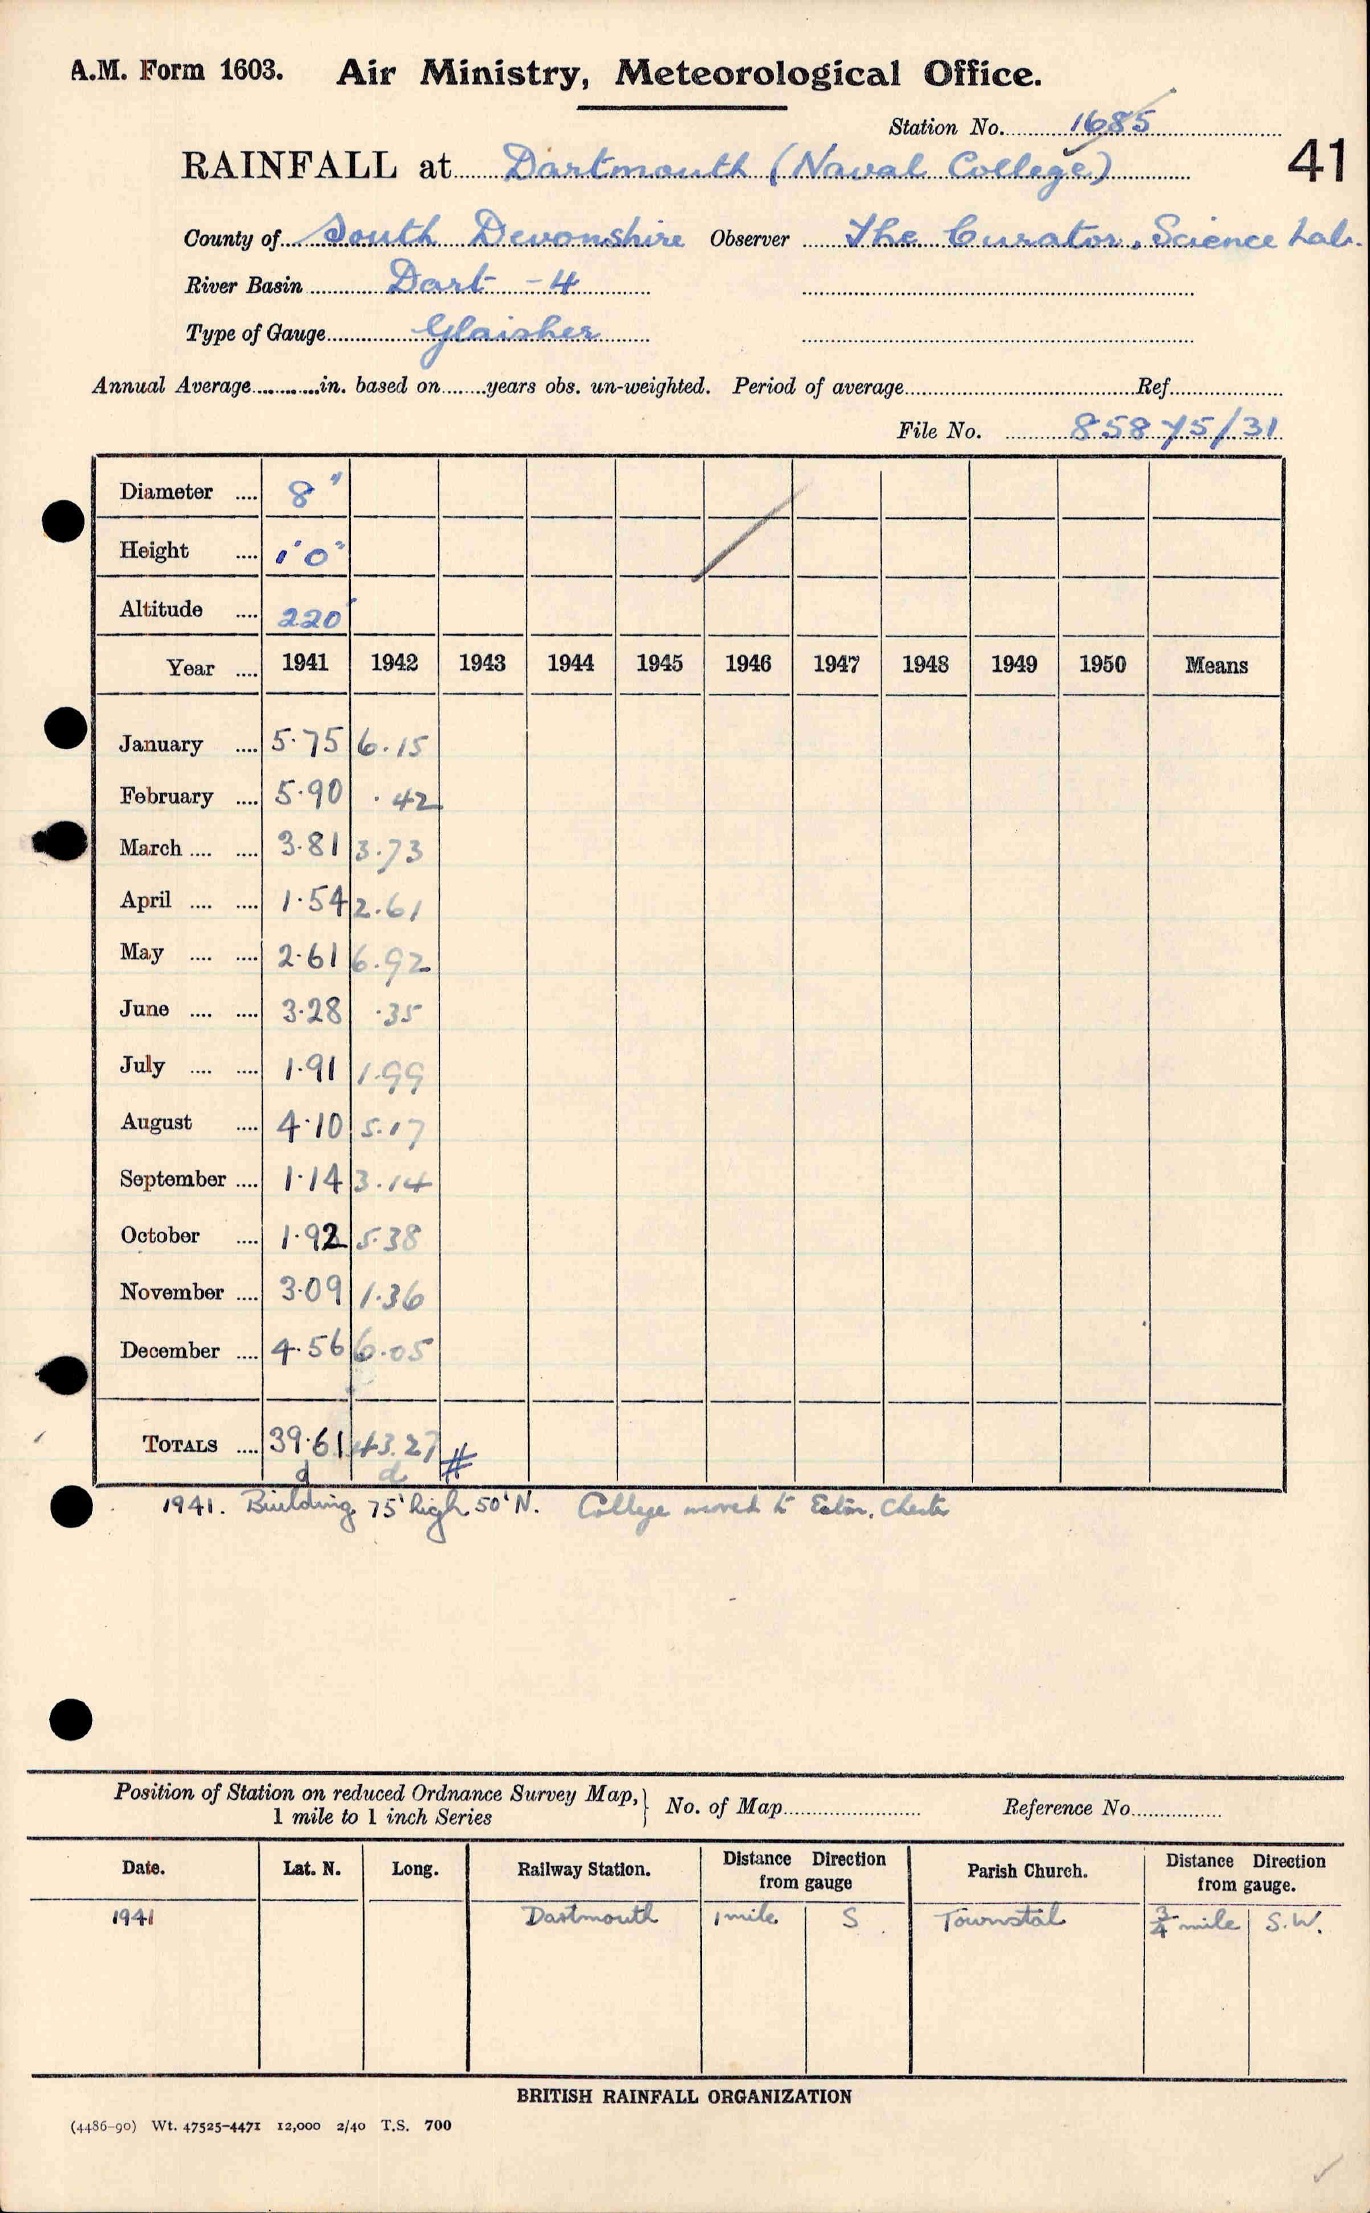 A.M. Form 1603. Air Ministry, Meteorological Office.
Station No. 1685
RAINFALL at Dartmouth (Naval College) 41
County of South Devonshire Observer The Curator, Science Lab.
River Basin Dart - 4
Type of Gauge Glaisher
Annual Average in. based on years obs. un-weighted. Period of average Ref.
File No. 85875/31
Diameter .... 8"
Height .... 1'0"
Altitude .... 220'
Year .... 1941 1942 1943 1944 1945 1946 1947 1948 1949 1950 Means
January .... 5.75 6.15
February .... 5.90 .42
March .... .... 3.81 3.73
April .... .... 1.54 2.61
May .... .... 2.61 6.92
June .... .... 3.28 .35
July .... .... 1.91 1.99
August .... 4.10 5.17
September .... 1.14 3.14
October .... 1.92 5.38
November .... 3.09 1.36
December .... 4.56 6.05
TOTALS .... 39.61 43.27 #
d d
1941. Building 75' high 50' N. College moved to Eaton, Chester
Position of Station on reduced Ordnance Survey Map, 1 mile to 1 inch Series } No. of Map Reference No.
Date. Lat. N. Long. Railway Station. Distance Direction from gauge Parish Church. Distance Direction from gauge.
1941 Dartmouth 1 mile S Townstal 3/4 mile S.W.
BRITISH RAINFALL ORGANIZATION
(4486-90) Wt. 47525-4471 12,000 2/40 T.S. 700